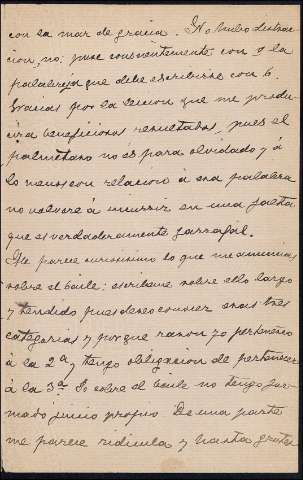 con la mar de gracia. No hubo distrac-
cion, no; puse conscientemente con v la
palabreja que debe escribirse con b.
Gracias por la leccion que me produ-
cira beneficiosos resultados, pues el
palmetazo no es para olvidado y á
lo menos con relacion á esa palabra
no volveré á incurrir en una falta
que es verdaderamente garrafal.
Me parece curiosísimo lo que me anuncias
sobre el baile: escribeme sobre ello largo
y tendido pues deseo conocer esas tres
categorias y por que razon yo pertenezco
á la 2ª y tengo obligacion de pertenecer
á la 3ª. Yo sobre el baile no tengo for-
mado juicio propio. De una parte
me parece ridicula y hasta grotes